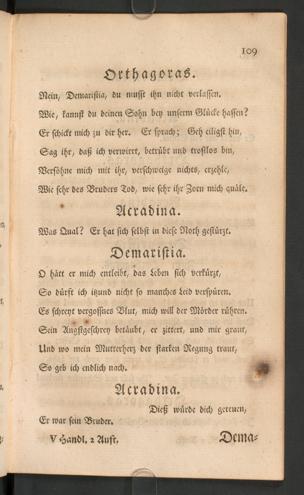 109
Orthagoras.
Nein, Demaristia, du musst ihn nicht verlassen.
Wie, kannst du deinen Sohn bey unserm Glücke hassen?
Er schickt mich zu dir her. Er sprach; Geh eiligst hin,
Sag ihr, daß ich verwirrt, betrübt und trostlos bin,
Versöhne mich mit ihr, verschweige nichts, erzehle,
Wie sehr des Bruders Tod, wie sehr ihr Zorn mich quäle.
Acradina.
Was Qual? Er hat sich selbst in diese Noth gestürzt.
Demaristia.
O hätt er mich entleibt, das Leben sich verkürzt,
So dürft ich itzund nicht so manches Leid verspüren.
Es schreyt vergossnes Blut, mich will der Mörder rühren.
Sein Angstgeschrey betäubt, er zittert, und mir graut,
Und wo mein Mutterherz der starken Regung traut,
So geb ich endlich nach.
Acradina.
Dieß würde dich gereuen,
Er war sein Bruder.
V Handl. 2 Auft. Dema-